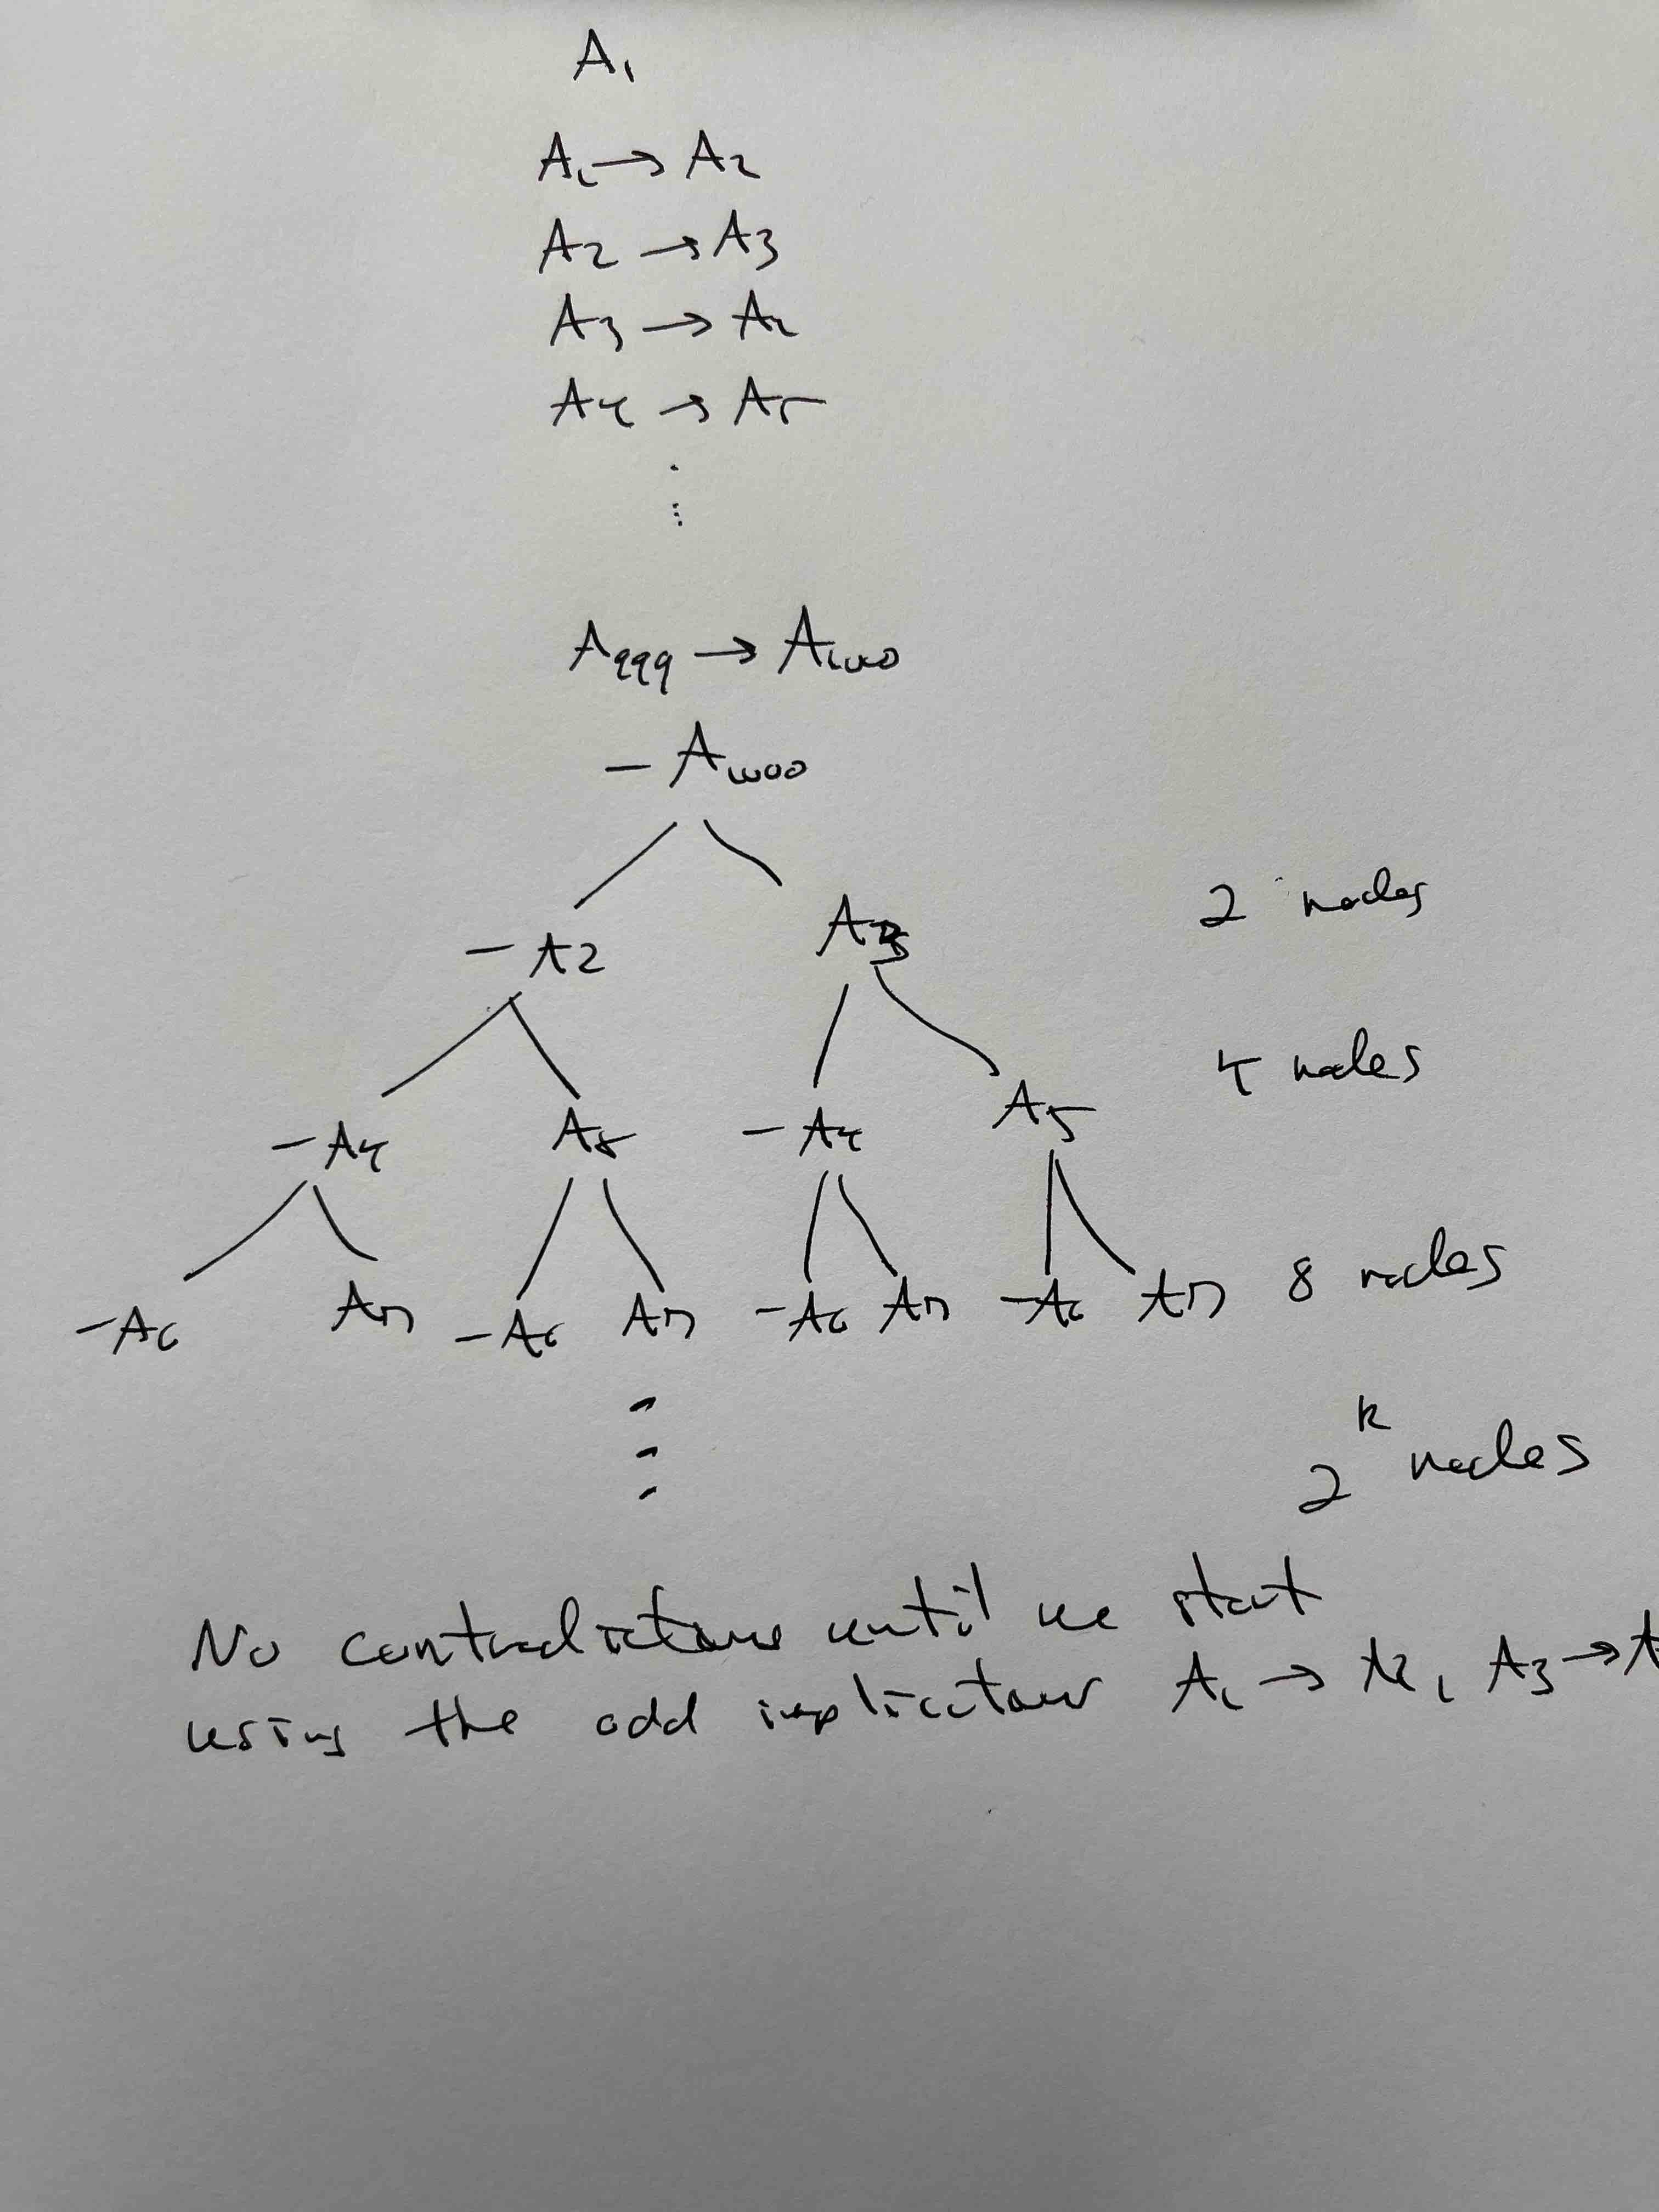 A₁
A₁ → A₂
A₂ → A₃
A₃ → A₄
A₄ → A₅
⋮
A₉₉₉ → A₁₀₀₀
− A₁₀₀₀
− A₂ A₃ 2 nodes
− A₄ A₅ − A₄ A₅ 4 nodes
− A₆ A₇ − A₆ A₇ − A₆ A₇ − A₆ A₇ 8 nodes
⋮
2ᵏ nodes
No contradictions until we start
using the odd implications A₁ → A₂, A₃ → A